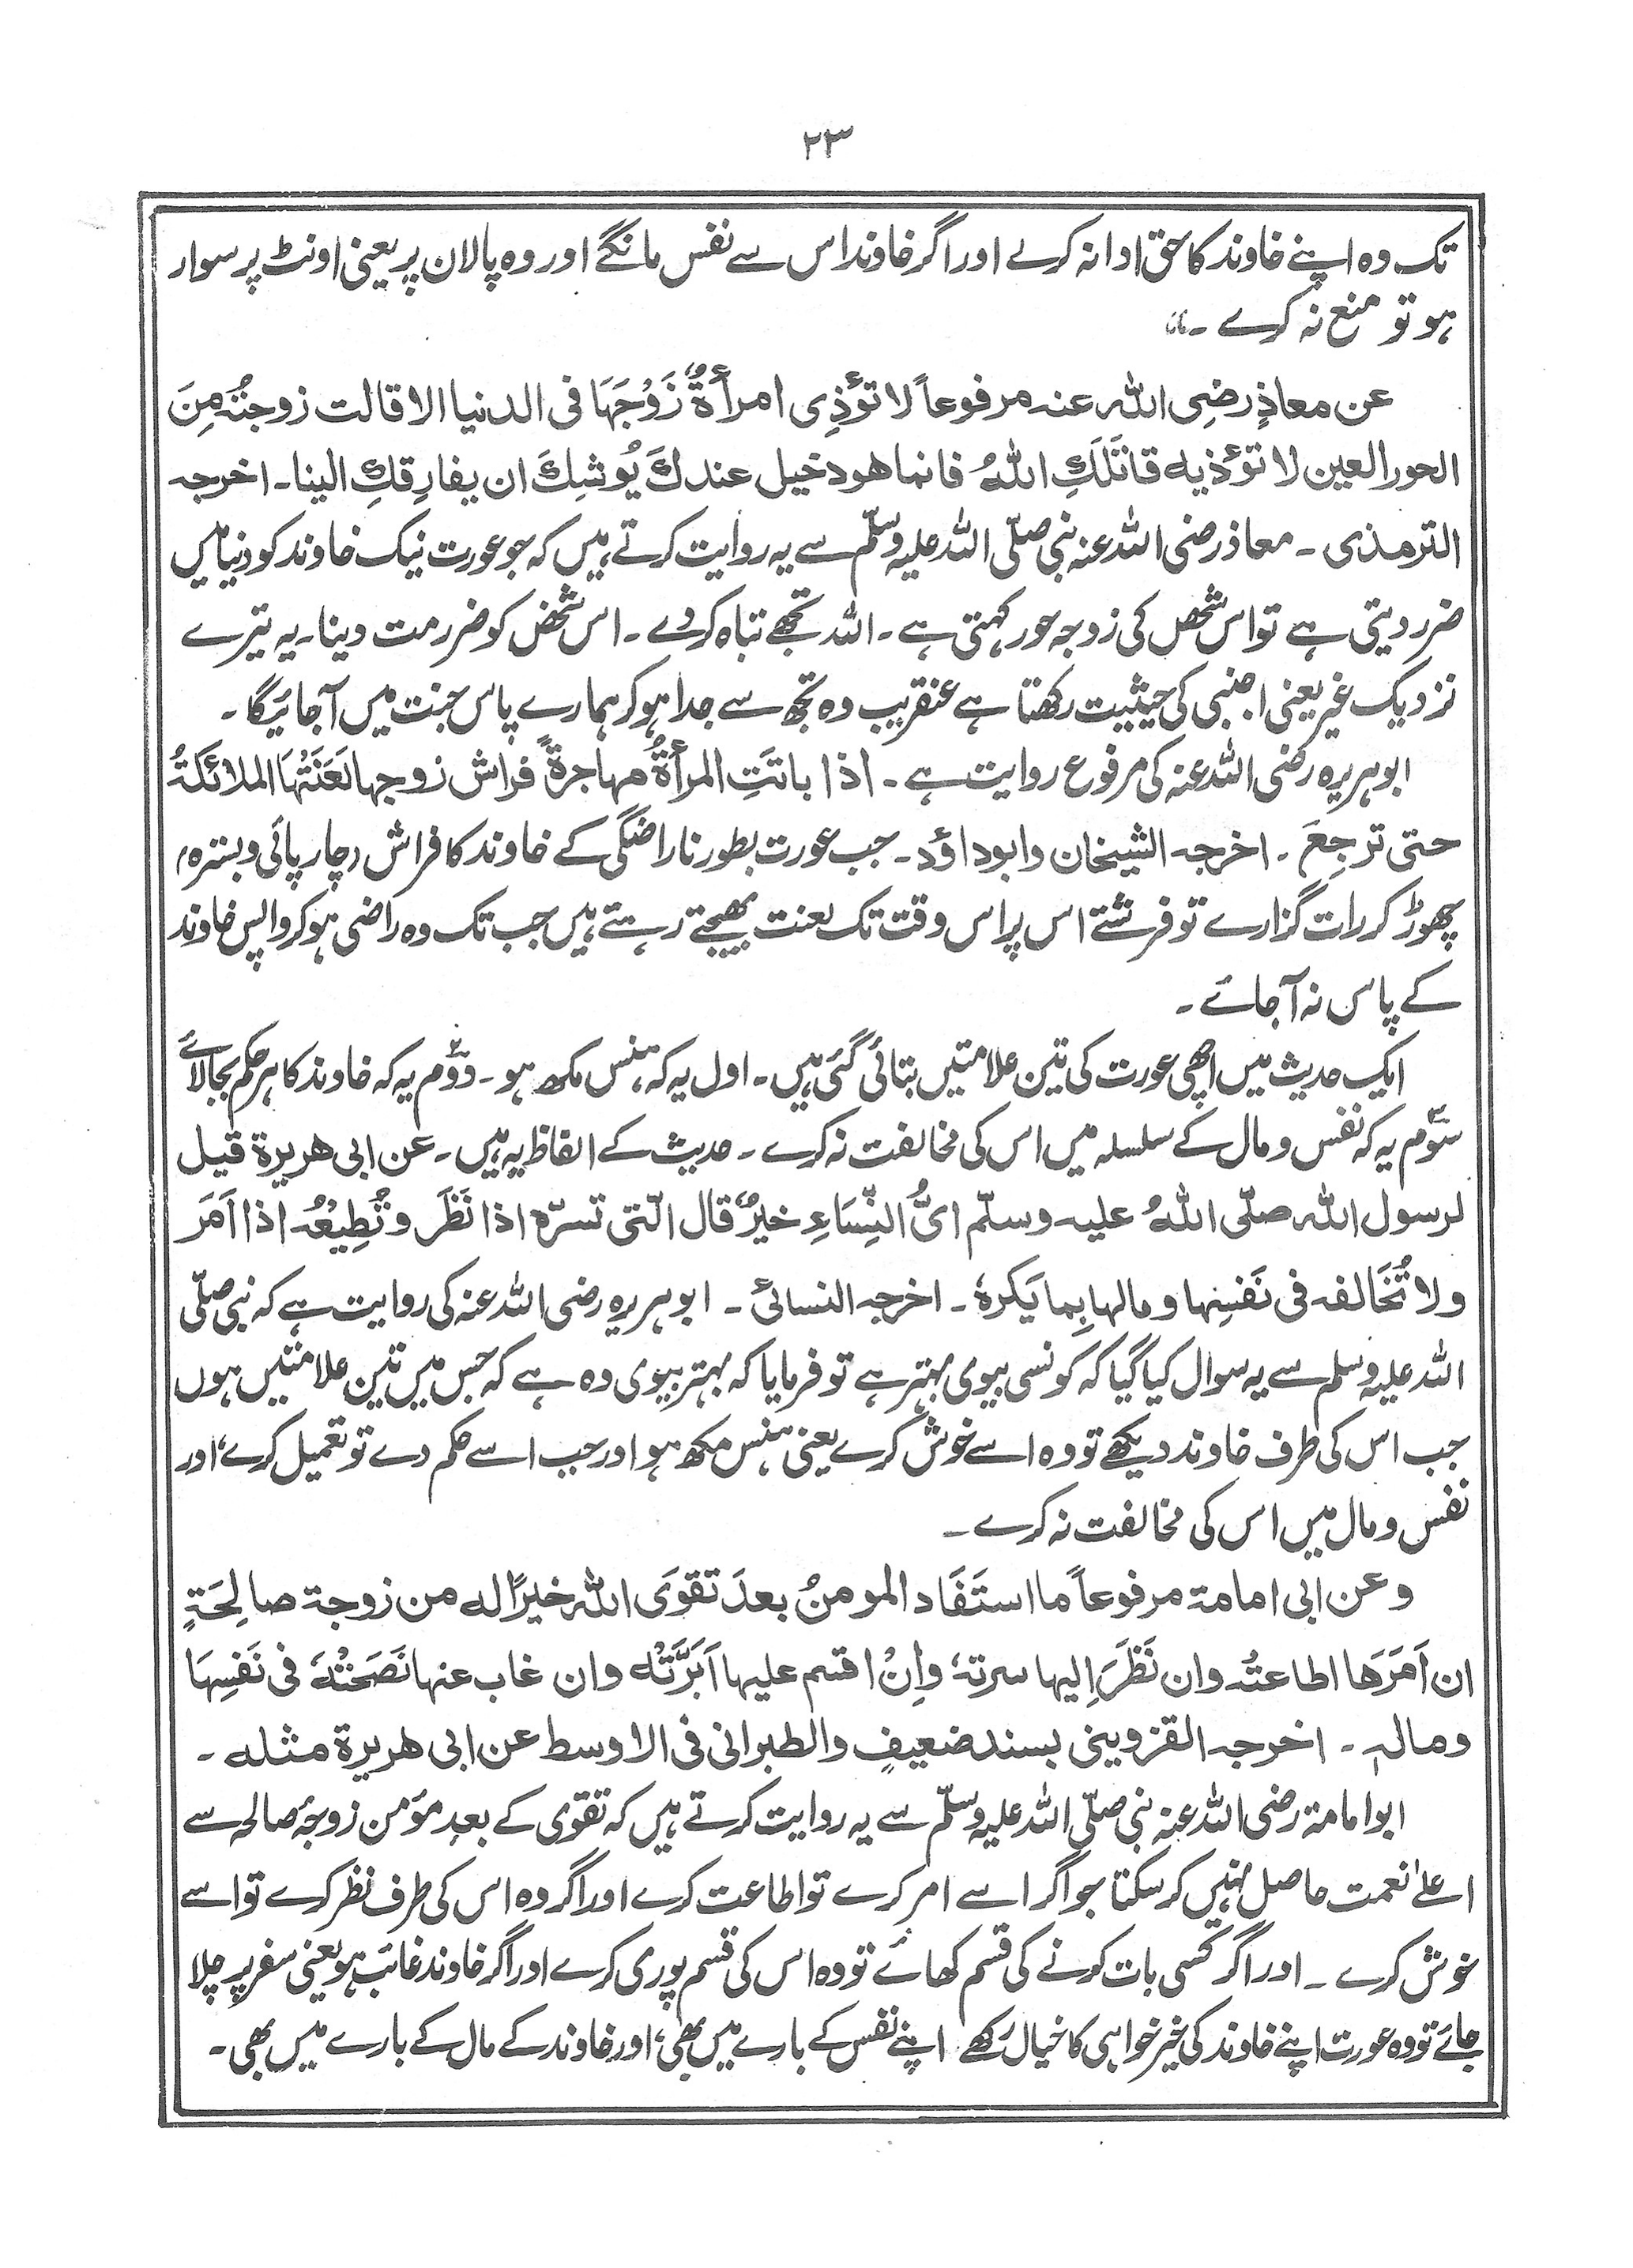 ۲۳
تک وہ اپنے خاوند کا حق ادا نہ کرلے اور اگر خاوند اس سے نفس مانگے اور وہ پالان پر یعنی اونٹ پر سوار
ہو تو منع نہ کرے ۔"
عن معاذٍ رضِی اللہ عنہ مرفوعاً لا تؤذِی امرأۃٌ زَوْجَہَا فی الدنیا الا قالت زوجتُہ مِنَ
الحور العین لا تؤذیہ قاتَلَكِ اللہُ فانما ھو دخیل عندكَ یُوشِكَ ان یفارِقكِ الینا۔ اخرجہ
الترمذی ۔ معاذ رضی اللہ عنہ نبی صلّی اللہ علیہ وسلّم سے یہ روایت کرتے ہیں کہ جو عورت نیک خاوند کو دنیا میں
ضرر دیتی ہے تو اس شخص کی زوجہ حور کہتی ہے ۔ اللہ تجھے تباہ کر دے ۔ اس شخص کو ضرر مت دینا ۔ یہ تیرے
نزدیک غیر یعنی اجنبی کی حیثیت رکھتا ہے عنقریب وہ تجھ سے جدا ہو کر ہمارے پاس جنت میں آجائیگا ۔
ابوہریرہ رضی اللہ عنہ کی مرفوع روایت ہے ۔ اذا باتَتِ المرأۃُ مہاجرۃً فراش زوجہا لَعَنَتْہَا الملائکۃُ
حتی ترجِعَ ۔ اخرجہ الشیخان وابوداؤد ۔ جب عورت بطور ناراضگی کے خاوند کا فراش (چارپائی و بسترہ)
چھوڑ کر رات گزارے تو فرشتے اس پر اس وقت تک لعنت بھیجتے رہتے ہیں جب تک وہ راضی ہو کر واپس خاوند
کے پاس نہ آجائے ۔
ایک حدیث میں اچھی عورت کی تین علامتیں بتائی گئی ہیں ۔ اول یہ کہ ہنس مکھ ہو ۔ دوّم یہ کہ خاوند کا ہر حکم بجالائے
سوّم یہ کہ نفس و مال کے سلسلہ میں اس کی مخالفت نہ کرے ۔ حدیث کے الفاظ یہ ہیں ۔ عن ابی ھریرۃ قیل
لرسول اللہ صلّی اللہُ علیہ وسلّم ایُّ النِّسَاءِ خیرٌ قال الّتی تسرّہ اذا نَظَرَ وتُطِیْعُہ اذا اَمَرَ
ولا تُخَالفہ فی نَفسِہا و مالہا بِما یَکرہٗ ۔ اخرجہ النسائیٔ ۔ ابوہریرہ رضی اللہ عنہ کی روایت ہے کہ نبی صلّی
اللہ علیہ وسلم سے یہ سوال کیا گیا کہ کونسی بیوی بہتر ہے تو فرمایا کہ بہتر بیوی وہ ہے کہ جس میں تین علامتیں ہوں
جب اس کی طرف خاوند دیکھے تو وہ اسے خوش کرے یعنی ہنس مکھ ہو اور جب اسے حکم دے تو تعمیل کرے، اور
نفس و مال میں اس کی مخالفت نہ کرے ۔
وعن ابی امامۃ مرفوعاً ما استَفَاد المومنُ بعدَ تقوَی اللہ خیرًا لہ من زوجۃ صالِحَۃٍ
ان اَمَرَھا اطاعتْہ وان نَظَرَ اِلیہا سرتہٗ وَاِنْ اقسم علیہا اَبَرَّتْہُ وان غاب عنہا نَصَحَتْہُ فی نَفسِہَا
ومالہٖ ۔ اخرجہ القزوینی بسند ضعیفٍ والطبرانی فی الاوسط عن ابی ھریرۃ مثلہ ۔
ابوامامۃ رضی اللہ عنہ نبی صلّی اللہ علیہ وسلّم سے یہ روایت کرتے ہیں کہ تقوی کے بعد مؤمن زوجۂ صالحہ سے
اعلےٰ نعمت حاصل نہیں کر سکتا جو اگر اسے امر کرے تو اطاعت کرے اور اگر وہ اس کی طرف نظر کرے تو اسے
خوش کرے ۔ اور اگر کسی بات کرنے کی قسم کھائے تو وہ اس کی قسم پوری کرے اور اگر خاوند غائب ہو یعنی سفر پر چلا
جائے تو وہ عورت اپنے خاوند کی خیر خواہی کا خیال رکھے اپنے نفس کے بارے میں بھی، اور خاوند کے مال کے بارے میں بھی ۔